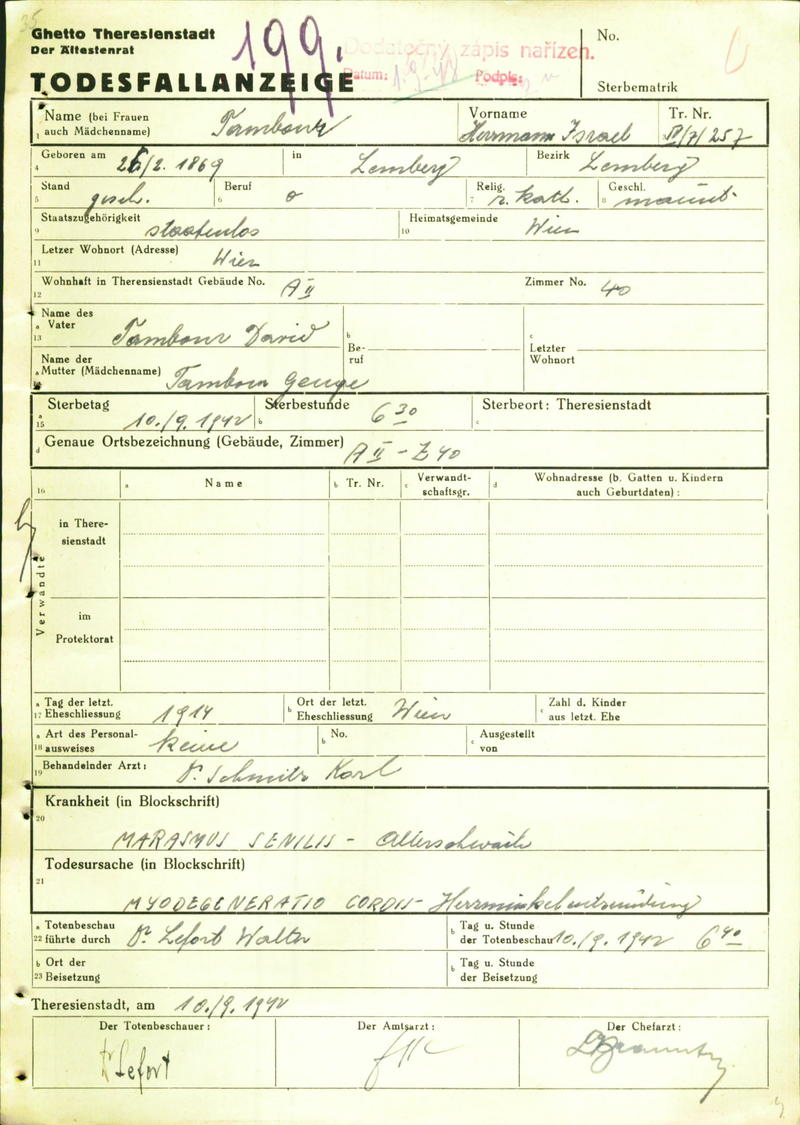 35
Ghetto Theresienstadt
Der Ältestenrat
199.
Dodatečný zápis nařízen.
Datum: 1.9.48 Podpis:
No.
TODESFALLANZEIGE
Sterbematrik
Name (bei Frauen auch Mädchenname) Tambour
Vorname Herrmann Israel
Tr. Nr. IV/7/257
1
4 Geboren am 26/2. 1869 in Lemberg Bezirk Lemberg
5 Stand gesch. 6 Beruf o 7 Relig. r. kath. 8 Geschl. männl.
9 Staatszugehörigkeit staatenlos 10 Heimatsgemeinde Wien
11 Letzer Wohnort (Adresse) Wien
12 Wohnhaft in Therensienstadt Gebäude No. A II Zimmer No. 40
13 a Name des Vater Tambour David
b Beruf
c Letzter Wohnort
a Name der Mutter (Mädchenname) Tambour
15 a Sterbetag 10./9. 1942 b Sterbestunde 6 30 c Sterbeort: Theresienstadt
d Genaue Ortsbezeichnung (Gebäude, Zimmer) A II - Z 40
16 a Name b Tr. Nr. c Verwandtschaftsgr. d Wohnadresse (b. Gatten u. Kindern auch Geburtdaten) :
Verwandte
in Theresienstadt
im Protektorat
17 a Tag der letzt. Eheschliessung 1914 b Ort der letzt. Eheschliessung Wien c Zahl d. Kinder aus letzt. Ehe
18 a Art des Personalausweises keine b No. c Ausgestellt von
19 Behandelnder Arzt: Dr. Karl
20 Krankheit (in Blockschrift)
MARASMUS SENILIS - Altersschwäche
21 Todesursache (in Blockschrift)
MYODEGENERATIO CORDIS - Herzmuskelentzündung
22 a Totenbeschau führte durch Dr. Lefort Walter b Tag u. Stunde der Totenbeschau 10./9. 1942 6 40
23 b Ort der Beisetzung b Tag u. Stunde der Beisetzung
Theresienstadt, am 10./9. 1942
Der Totenbeschauer: Der Amtsarzt: Der Chefarzt:
Dr Lefort